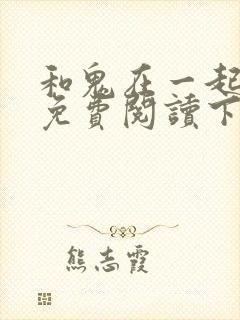 和鬼在一起
免費閱讀下
熊志霞